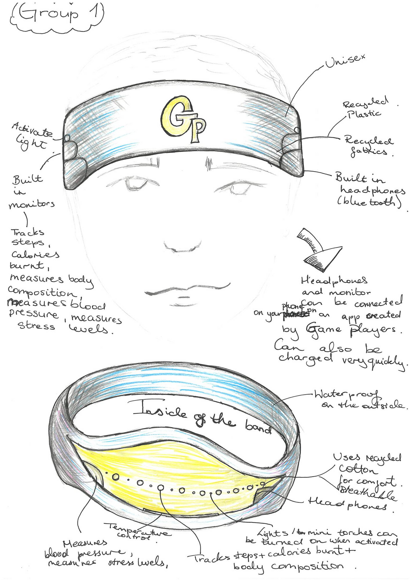 (Group 1)
Unisex
GP
Recycled
Plastic
Activate
light.
Recycled
fabrics.
Built
in
monitors
Built in
headphones
(bluetooth).
Tracks
steps,
calories
burnt,
measures body
composition,
measures blood
pressure, measures
stress levels.
Headphones
and monitor
can be connected
phone on
on your on an app created
by Game players.
Can also be
charged very quickly.
Waterproof
on the outside.
Inside of the band
Uses recycled
cotton
for comfort.
Breathable
Headphones.
Temperature
control.
Lights/ mini torches can
be turned on when activated
Measures
blood pressure,
measures stress levels,
Tracks steps + calories burnt +
body composition